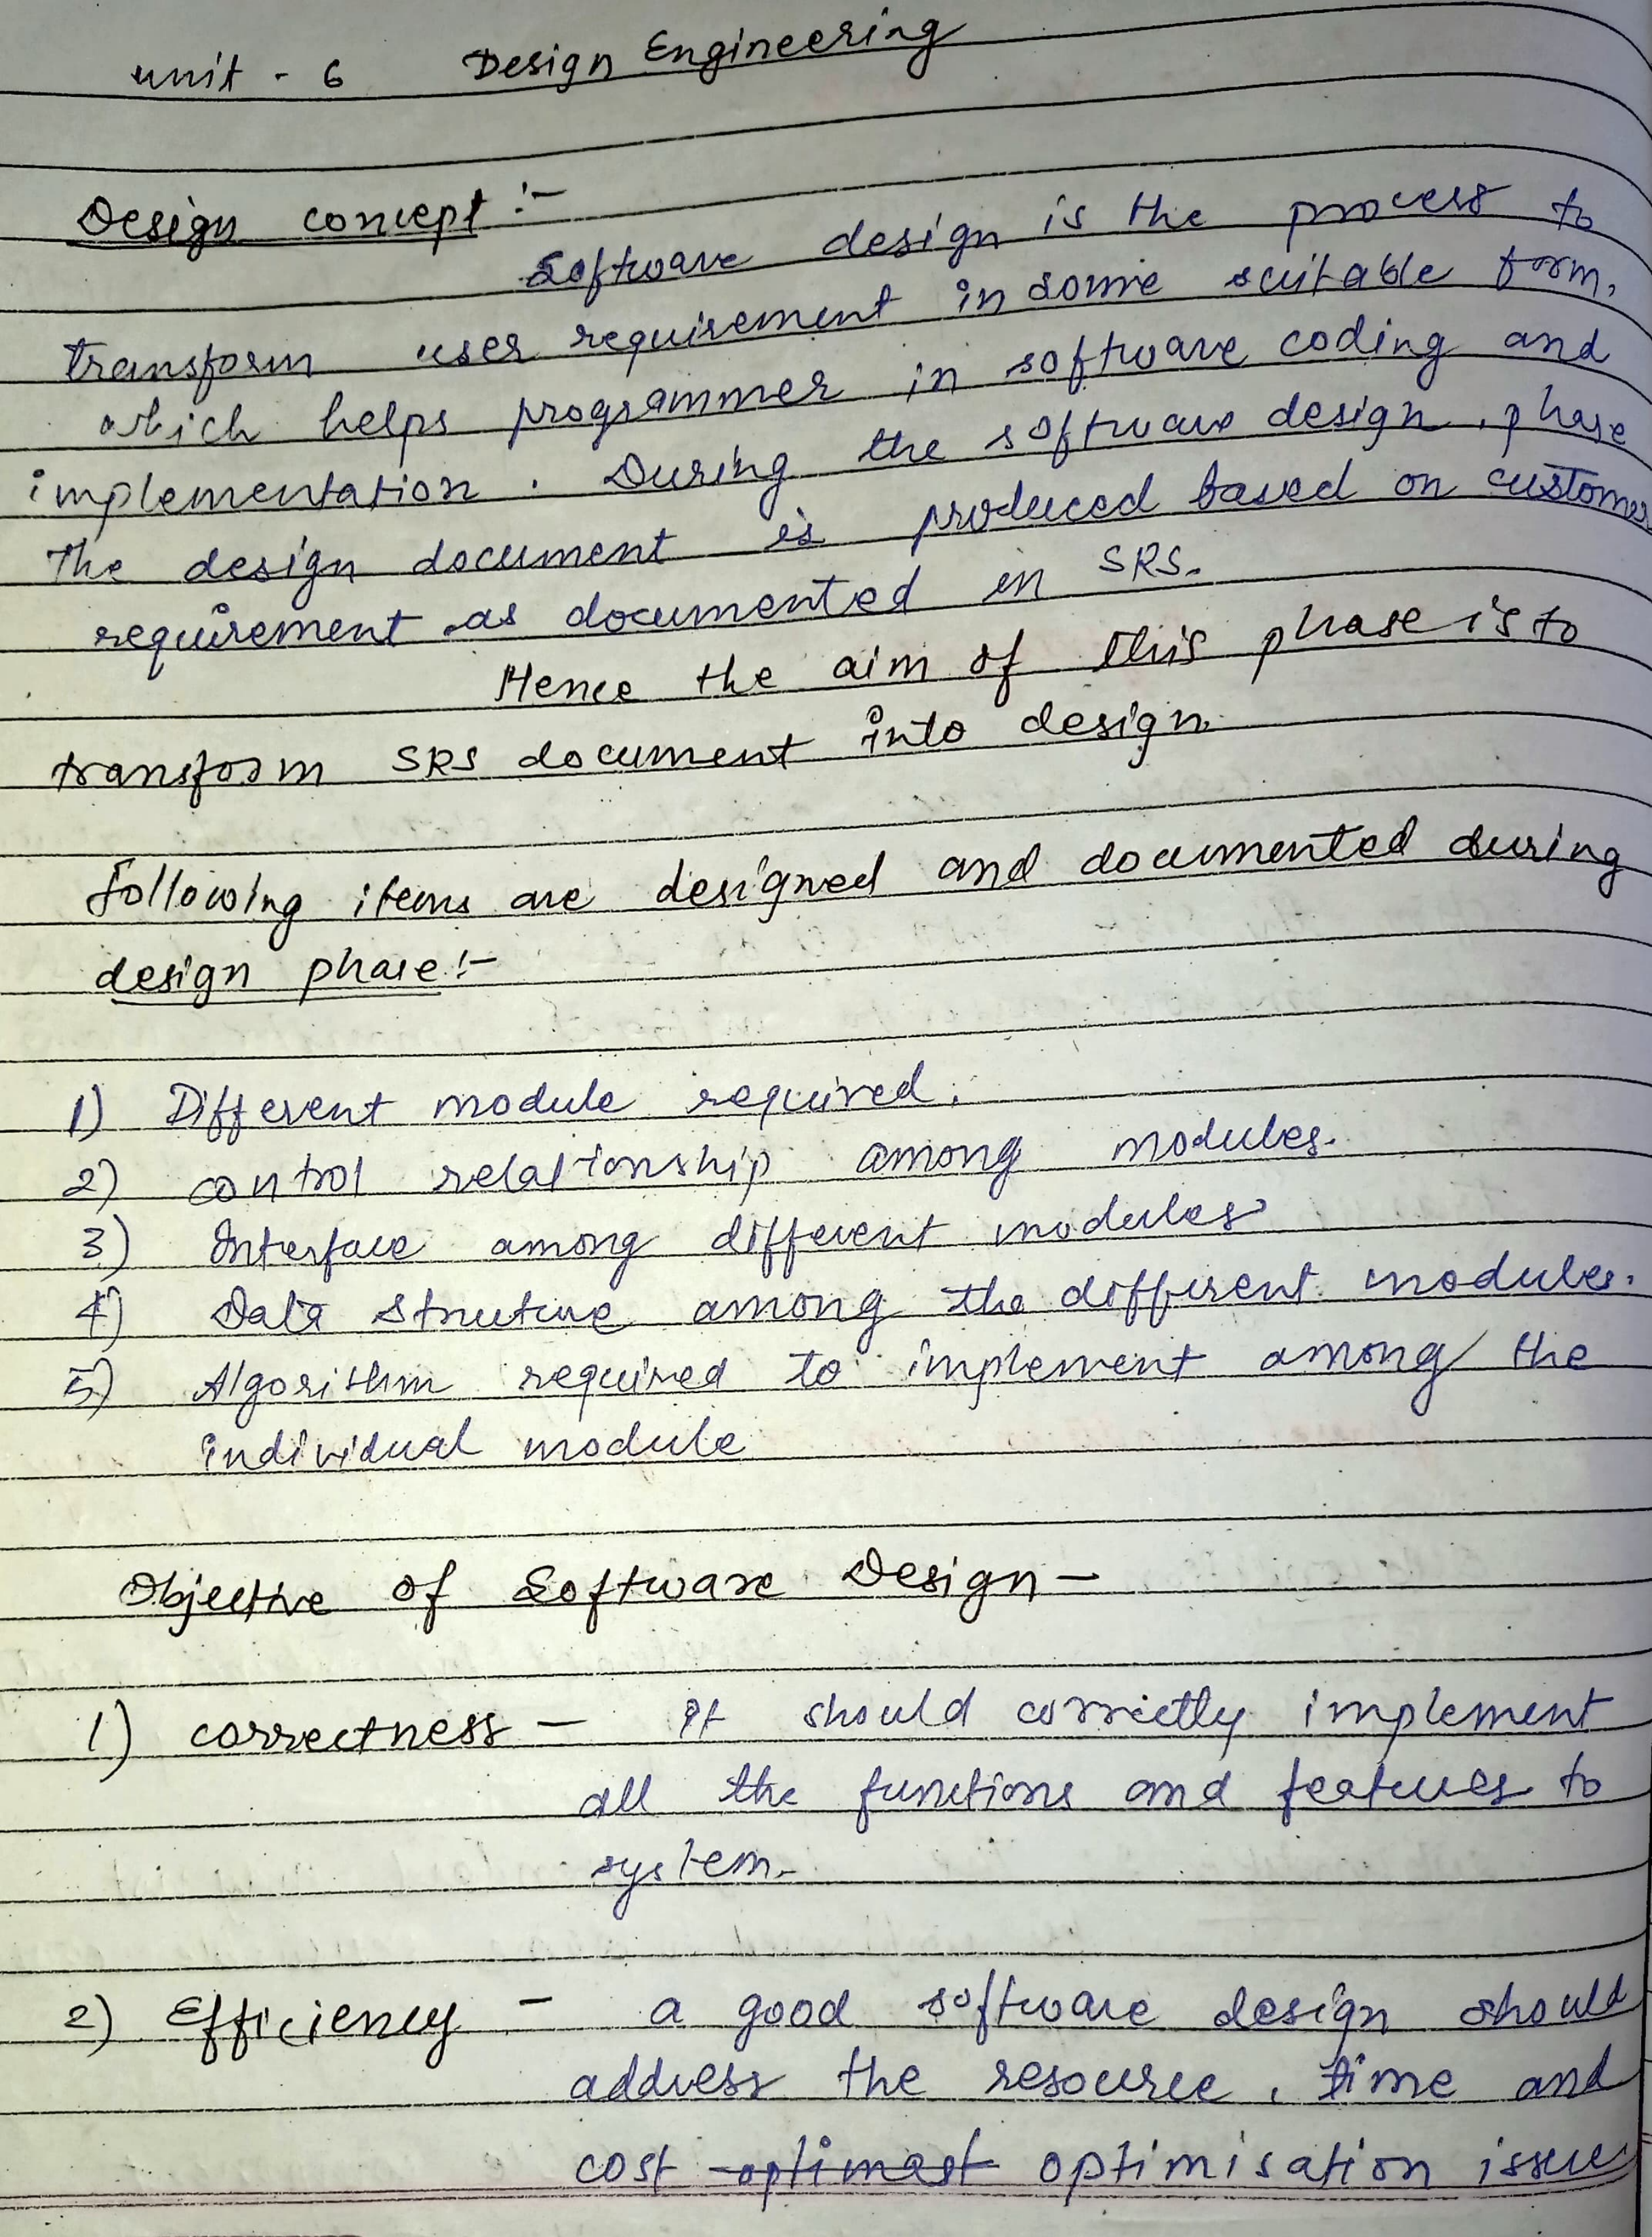 unit - 6 Design Engineering
Design concept :-
Software design is the process to
transform user requirement in some suitable form,
which helps programmer in software coding and
implementation. During the software design phase
The design document is produced based on customer
requirement as documented in SRS.
Hence the aim of this phase is to
transform SRS document into design
following items are designed and documented during
design phase :-
1) Different module required.
2) control relationship among modules.
3) Interface among different modules
4) Data structure among the different modules.
5) Algorithm required to implement among the
individual module
Objective of Software Design -
1) correctness - It should correctly implement
all the functions and features to
system.
2) Efficiency - a good software design should
address the resource, time and
cost optimast optimisation issue